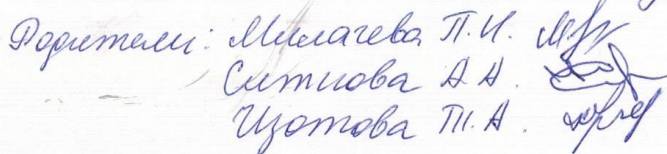 Родители: Милачева П.И.
Ситнова А.А.
Изотова Т.А.